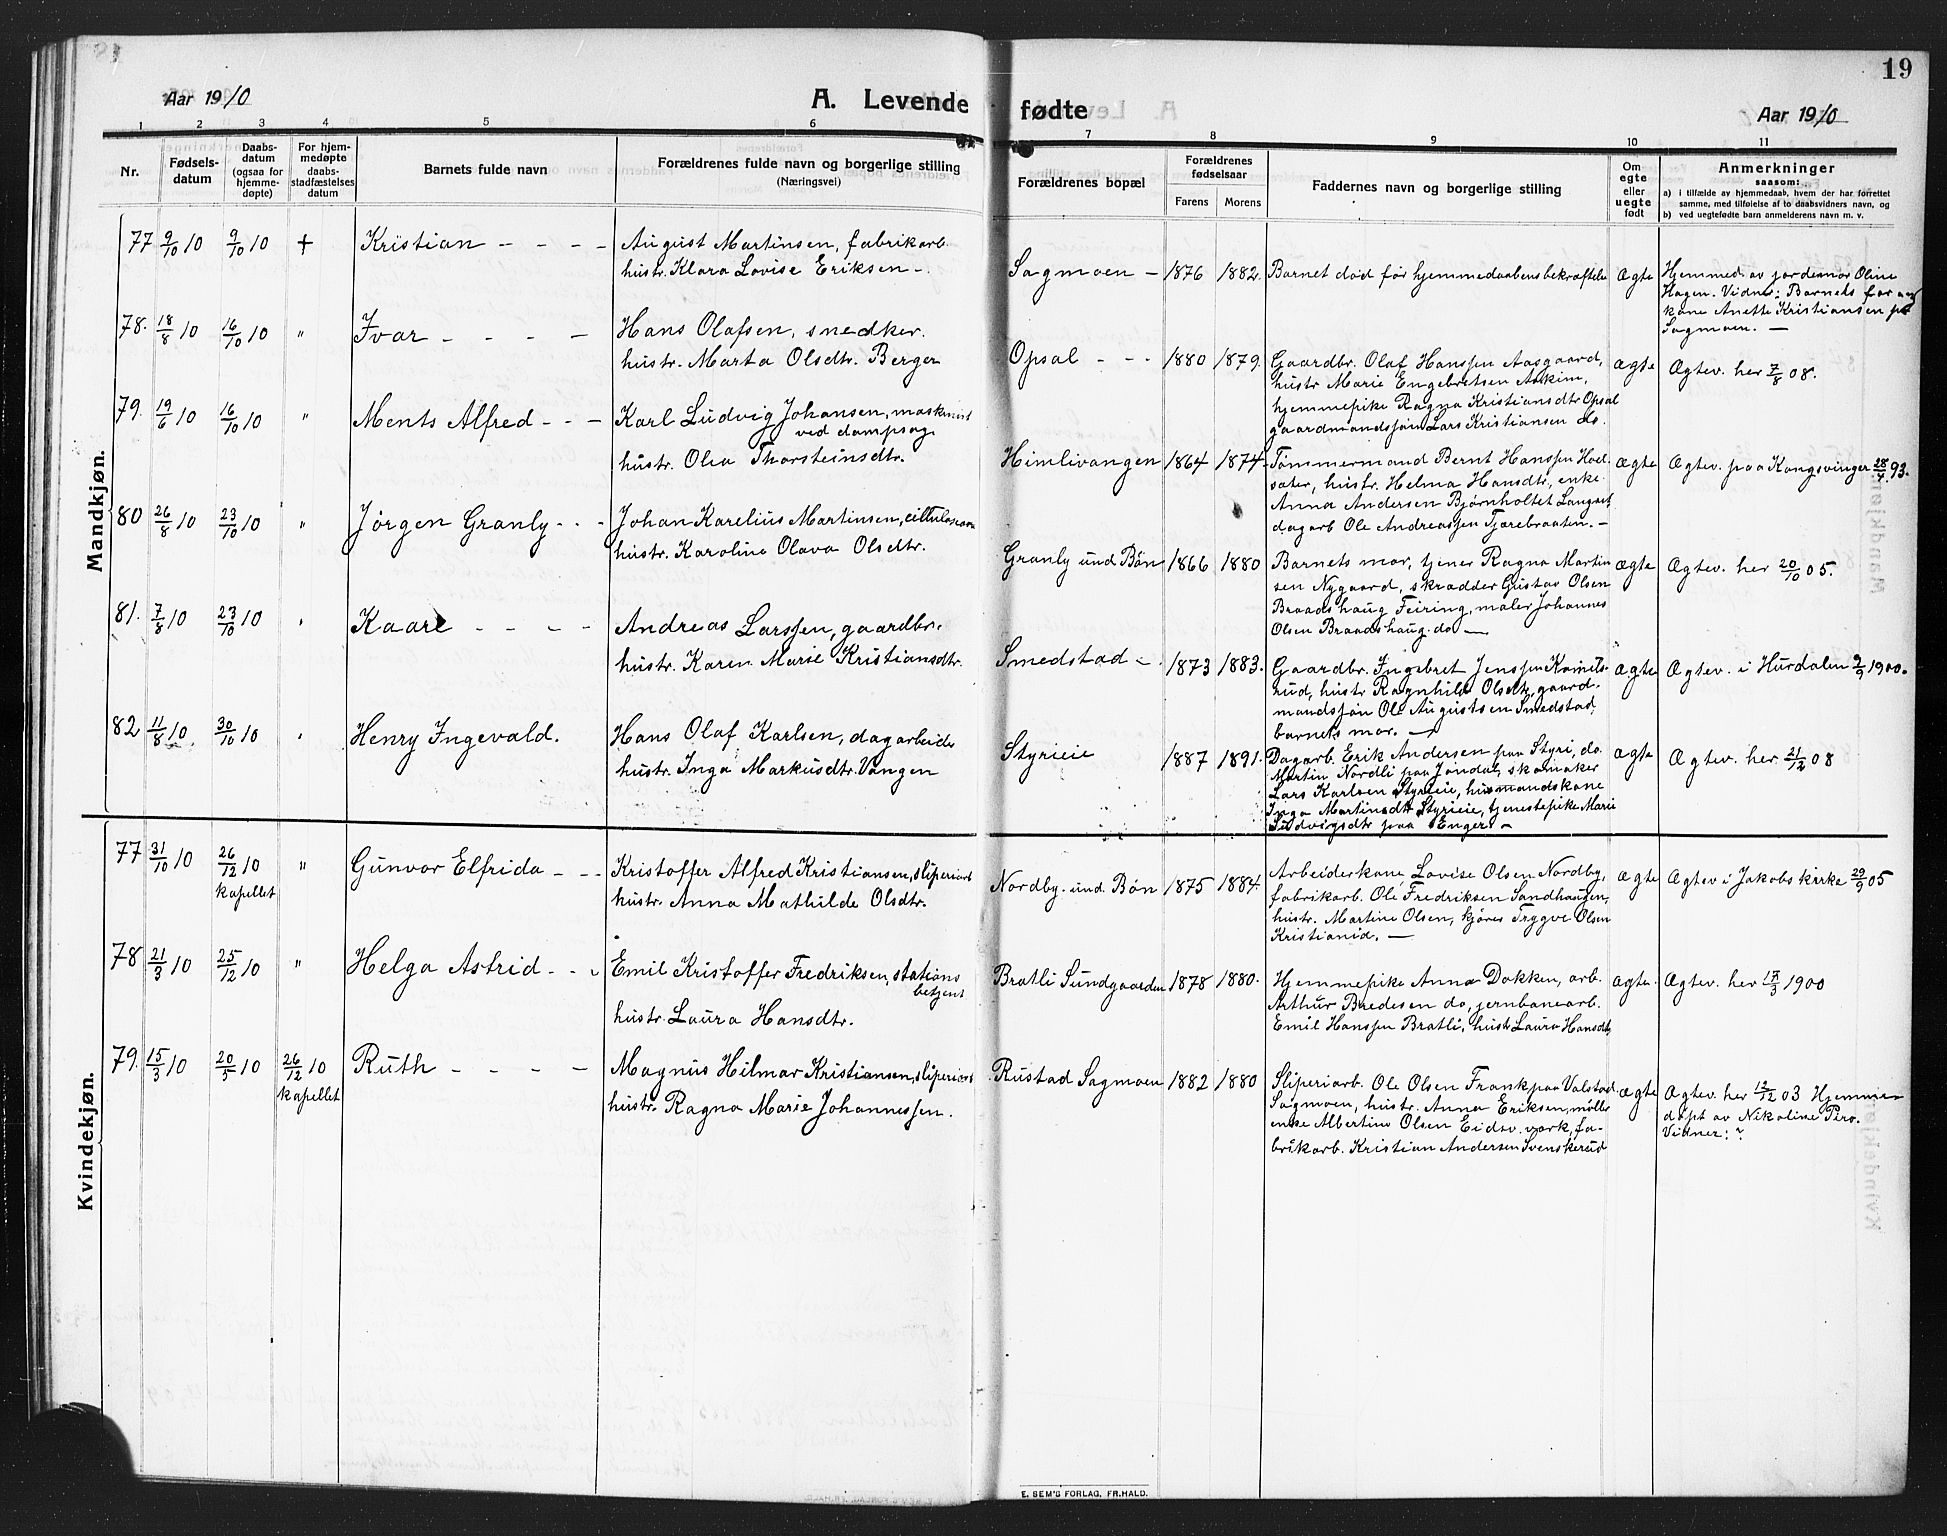 19
Aar 1910
A. Levende fødte
Aar 1910
1 2 3 4 5 6 7 8 9 10 11
Nr.
Fødsels-
datum
Daabs-
datum
(ogsaa for
hjemme-
døpte)
For hjem-
medøpte
daabs-
stadfæstelses
datum
Barnets fulde navn
Forældrenes fulde navn og borgerlige stilling
(Næringsvei)
Forældrenes bopæl
Forældrenes
fødselsaar
Farens Morens
Faddernes navn og borgerlige stilling
Om
egte
eller
uegte
født
Anmerkninger
saasom:
a) i tilfælde av hjemmedaab, hvem der har forrettet
samme, med tilføielse af to daabsvidners navn, og
b) ved uegtefødte barn anmelderens navn m. v.
Mandkjøn.
77 9/10 10 9/10 10 + Kristian - - - -
August Martinsen, fabrikarb.
hustr. Klara Lovise Eriksen -.
Sagmoen - 1876 1882.
Barnet død før hjemmedaabens bekræftelse
Ægte
Hjemmed. av jordemor Oline
Hagen. Vidner: Barnets far og
kone Anette Kristiansen paa
Sagmoen. -
78. 18/8 10 16/10 10 " Ivar - - - -
Hans Olafsen, snedker.
hustr. Marta Olsdtr. Berger
Opsal - - - 1880 1879.
Gaardbr. Olaf Hanssen Aasgaard,
hustr Marie Engebretsen Askim,
hjemmepike Ragna Kristiansdtr Opsal
gaardmandssøn Lars Kristiansen do.
ægte
Ægtev. her 7/8 08.
79. 19/6 10 16/10 10 " Ments Alfred - - -
Karl Ludvig Johansen, maskinist
ved dampsag.
hustr. Olea Thorsteinsdtr.
Himlivangen 1864 1874.
Tømmermand Bernt Hanssen Hoel-
sæter, hustr. Helma Hansdtr, enke
Anna Andersen Bjørnholtet Langset,
dagarb Ole Andreassen Tjærebraaten. -
ægte
Ægtev. paa Kongsvinger 28/4 93.
80 26/8 10 23/10 10 " Jørgen Granly - - -
Johan Karelius Martinsen,
hustr. Karoline Olava Olsdtr.
Granly und Bøn 1866 1880
Barnets mor, tjener Ragna Martin
sen Nygaard, skrædder Gustav Olsen
Braadshaug Feiring, maler Johannes
Olsen Braadshaug. do -
ægte
Ægtev. her 20/10 05.
81. 7/8 10 23/10 10 " Kaare - - - -
Andreas Larssen, gaardbr.
hustr. Karen Marie Kristiansdtr.
Smedstad - 1873 1883.
Gaardbr. Ingebret Jenssen
rud, hustr Ragnhild Olsdtr, gaard-
mandssøn Ole Augustsen Smedstad,
barnets mor. -
ægte
Ægtev. i Hurdalen 2/9 1900.
82 11/8 10 30/10 10 " Henry Ingevald.
Hans Olaf Karlsen, dagarbeider
hustr. Inga Markusdtr. Vangen
Styrieie 1887 1891.
Dagarb. Erik Andersen paa Styri, do
Martin Nordli paa Jøndal, skomaker
Lars Karlsen Styrieie, husmandskone
Inga Martinsdtr Styrieie, tjenestepike Marie
Ludvigsdtr paa Enger. -
ægte
Ægtev. her 21/12 08
Kvindekjøn.
77 31/10 10 26/12 10 " Gunvor Elfrida - - -
kapellet
Kristoffer Alfred Kristiansen, sliperiarb
hustr. Anna Mathilde Olsdtr.
Nordby. und. Bøn 1875 1884.
Arbeiderkone Lovise Olsen Nordby,
fabrikarb. Ole Fredriksen Sandhaugen,
hustr. Martine Olsen, kjøres Trygve Olsen
Kristiania. -
ægte
Ægtev i Jakobs kirke 29/9 05
78 21/3 10 25/12 10 " Helga Astrid - - -
Emil Kristoffer Fredriksen, stations
betjent
hustr. Laura Hansdtr.
Bratli Sundgaarden 1878 1880.
Hjemmepike Anna Dokken, arb.
Arthur Bredesen do, jernbanearb.
Emil Hanssen Bratli, hustr Laura Hansdtr
ægte.
Ægtev. her 17/3 1900
79. 15/3 10 20/5 10 26/12 10 Ruth - - - -
kapellet
Magnus Hilmar Kristiansen, sliperiarb
hustr. Ragna Marie Johannessen.
Rustad Sagmoen 1882 1880
Sliperiarb. Ole Olsen Frank paa Valstad
Sagmoen, hustr. Anna Eriksen, møller
enke Albertine Olsen Eidsv. værk, fa-
brikarb. Kristian Andersen Svenskerud
ægte
Ægtev. her 12/12 03 Hjemme
døpt av Nikoline Pero.
Vidner: ?
E. SEM'S FORLAG, FR.HALD.